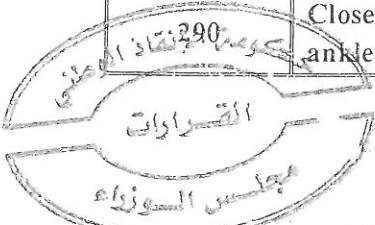 290 Close
ankle
حكومة الإنقاذ الوطني
القرارات
مجلس الوزراء